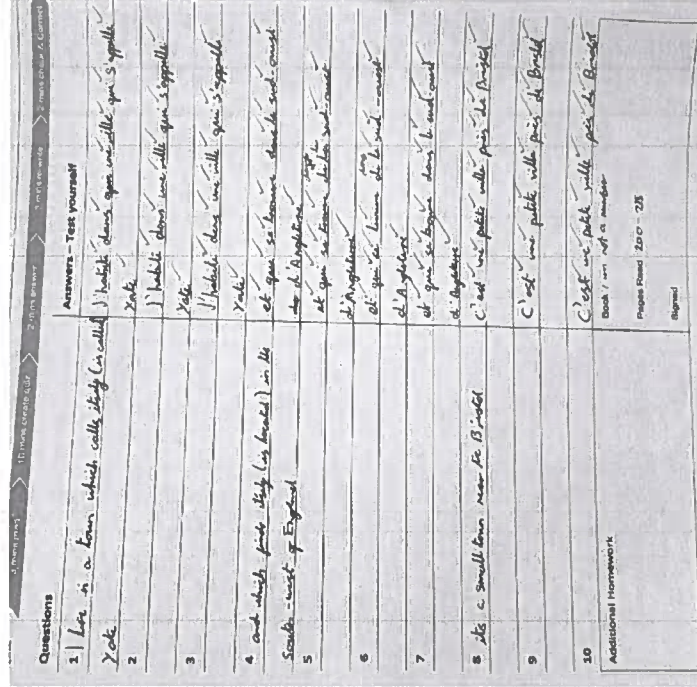 5 mins create quiz
2 mins answer
2 mins re-write
2 mins check & correct
Questions
Answers - Test yourself
1 I live in a town which calls itself (is called)
Yate
J'habite dans une ville qui s'appelle
Yate
2
J'habite dans une ville qui s'appelle
Yate
3
J'habite dans une ville qui s'appelle
Yate
4 and which finds itself (is located) in the
South-west of England
et qui se trouve dans le sud-ouest
d'Angleterre
5
et qui se trouve dans le sud-ouest
d'Angleterre
6
et qui se trouve dans le sud-ouest
d'Angleterre
7
et que se trouve dans le sud-ouest
d'Angleterre
8 its a small town near to Bristol
C'est une petite ville près de Bristol
9
C'est une petite ville près de Bristol
10
C'est une petite ville près de Bristol
Additional Homework
Book I am not a number
Pages Read 200-215
Signed